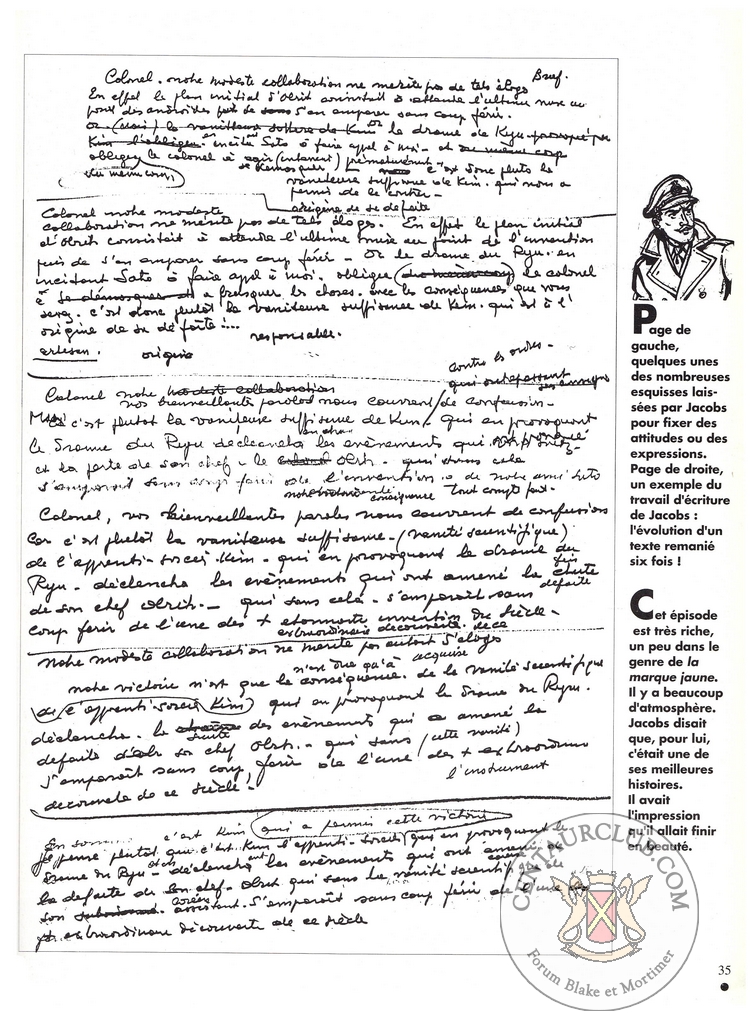 Colonel. notre modeste collaboration ne merite pas de tels éloges Bref.
En effet le plan initial d'Olrik consistait à attendre l'ultime mise au
point des androïdes puis de s'en emparer sans coup férir.
Or (Mais) le drame de Ryu
incité Sato à faire appel à moi - et du même coup
obligea le colonel à agir prématurément
se démasquer c'est donc plutôt la
vaniteuse suffisance de Kim. qui nous a
permis de le contrer -
origine de sa défaite
Colonel notre modeste
collaboration ne merite pas de tels éloges. En effet le plan initial
d'Olrik consistait à attendre l'ultime mise au point de l'invention
puis de s'en emparer sans coup férir - Or le drame du Ryu. en
incitant Sato à faire appel à moi. obligea le colonel
à se démasquer à brusquer les choses. avec les conséquences que vous
savez. c'est donc plutôt la vaniteuse suffisance de Kim. qui est à l'
origine de sa défaite !...
responsable.
artisan. origine
contre les ordres -
Colonel notre modeste collaboration
vos bienveillantes paroles nous couvrent de confusion -
Mais c'est plutot la vaniteuse suffisance de Kim qui en provoquant
le Drame du Ryu declencha les evènements qui
et la perte de son chef - le colonel Olrik - qui sans cela
s'emparait sans coup férir de l'invention de notre ami Sato
conséquence tout compte fait -
Colonel, vos bienveillantes paroles nous couvrent de confusion
Car c'est plutôt la vaniteuse suffisance - (vanité scientifique)
de l'apprenti-sorcier Kim - qui en provoquant le drame du
Ryu - déclencha les evènements qui ont amené la chute
défaite
de son chef Olrik - qui sans cela - s'emparait sans
coup férir de l'une des + etonnante invention du siècle -
extraordinaire decouverte de ce
notre modeste collaboration ne merite pas autant d'eloge
n'est due qu'à acquise
notre victoire n'est que la conséquence. de la vanité scientifique
de l'apprenti-sorcier Kim qui en provoquant le Drame du Ryu.
déclencha. la suite des evènements qui a amené la
defaite de son chef Olrik - qui sans (cette vanité)
s'emparait sans coup férir de l'une des + extraordinaire
l'instrument
decouverte de ce siècle.
En somme c'est Kim qui a permis cette victoire
Je pense plutot que c'est Kim l'apprenti-sorcier qui en provoquant le
Drame du Ryu - déclencha les evènements qui ont amené
la defaite de son chef - Olrik qui sans la vanité scientifique de
son assistant. s'emparait sans coup férir de l'une des
+ extraordinaire découverte de ce siècle
Page de
gauche,
quelques unes
des nombreuses
esquisses lais-
sées par Jacobs
pour fixer des
attitudes ou des
expressions.
Page de droite,
un exemple du
travail d'écriture
de Jacobs :
l'évolution d'un
texte remanié
six fois !
Cet épisode
est très riche,
un peu dans le
genre de la
marque jaune.
Il y a beaucoup
d'atmosphère.
Jacobs disait
que, pour lui,
c'était une de
ses meilleures
histoires.
Il avait
l'impression
qu'il allait finir
en beauté.
CENTAURCLUB.COM
Forum Blake et Mortimer
35